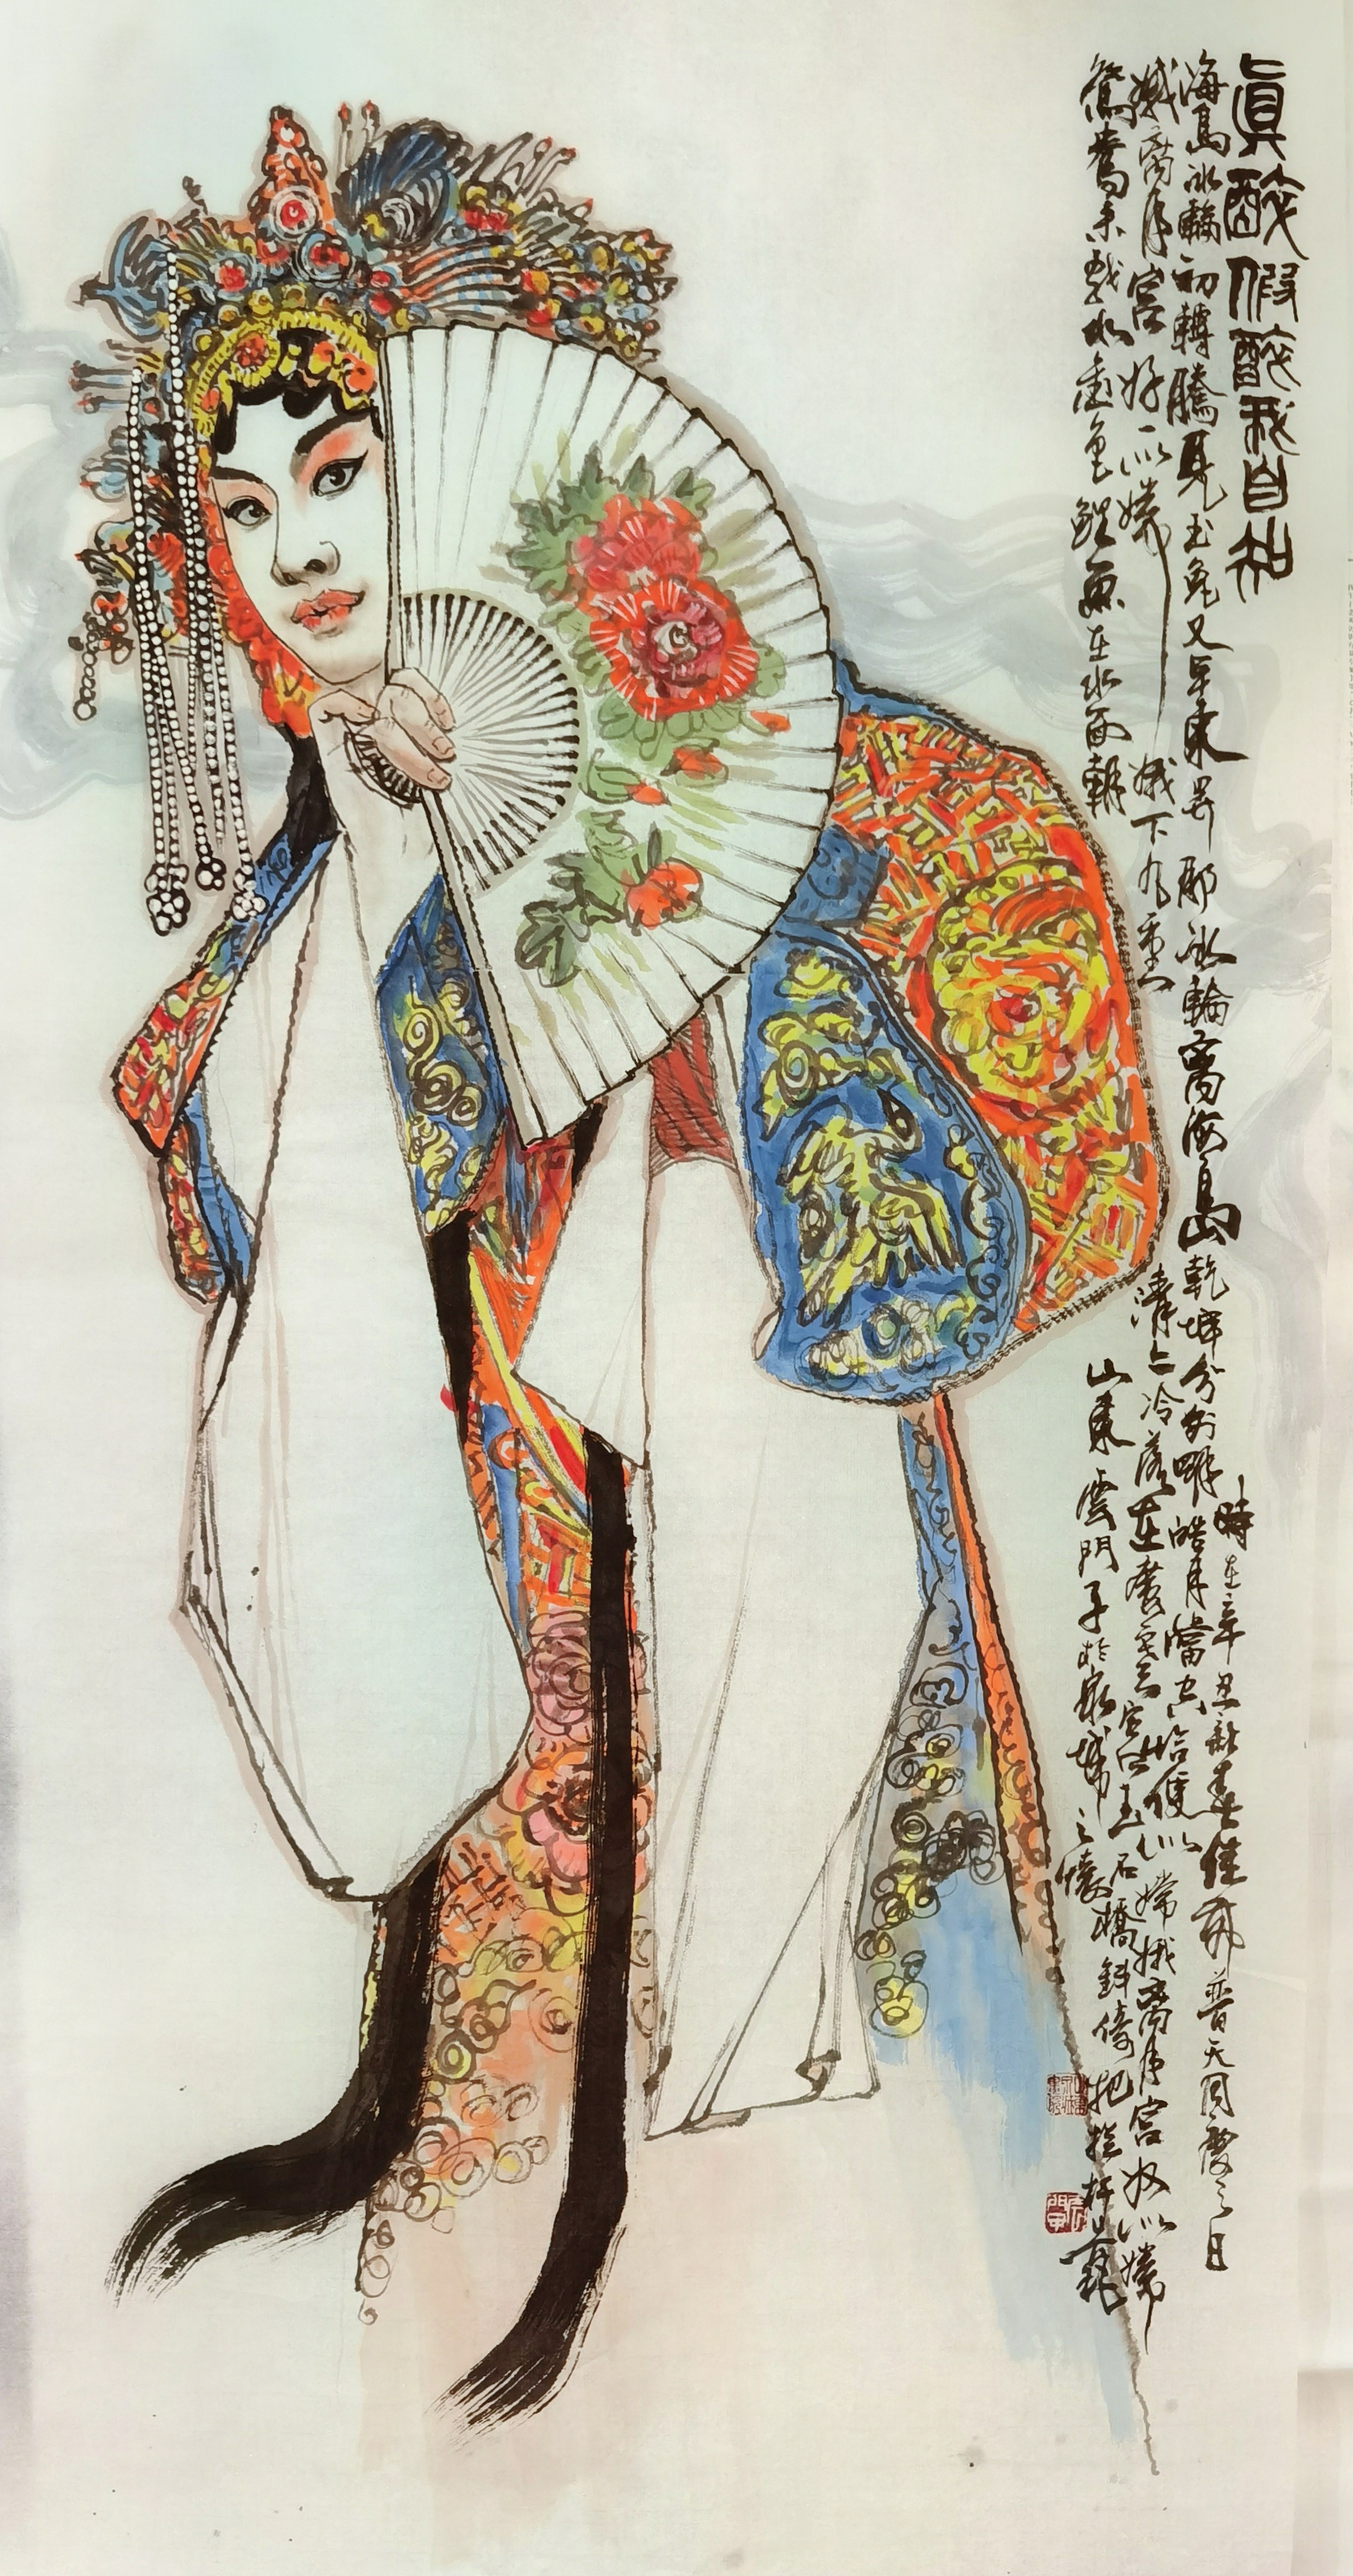 眞醉假醉我自知
海島冰輪初轉騰見玉兔又早東昇那冰輪离海島乾坤分外明皓月當空恰便似
嫦娥离月宮奴似嫦
娥离月宮好一似嫦娥下九重
清清冷落在廣寒宮玉石橋斜倚把欄杆靠
鴛鴦來戲水金色鯉魚在水面朝
時在辛丑新春佳節普天同慶之日
山東雲門子於泉城之